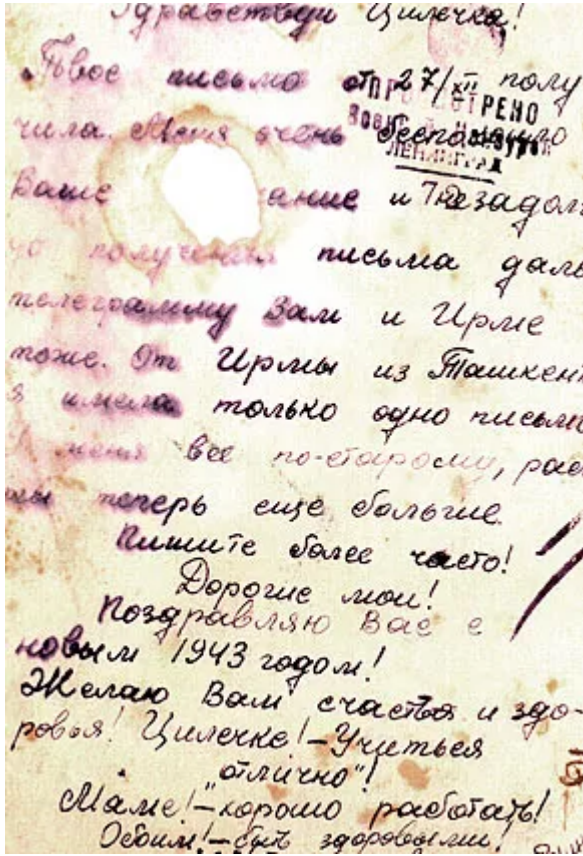 Здравствуй Цилечка!
Твое письмо от 27/XII полу
чила. Меня очень беспокоило
ПРОСМОТРЕНО
Военной Цензурой
ЛЕНИНГРАД
Ваше ание и я незадол
го получения письма дала
телеграмму Вам и Ирме
тоже. От Ирмы из Ташкент
я имела только одно письмо
У меня все по-старому, рас
ны теперь еще больше.
Пишите более часто!
Дорогие мои!
Поздравляю Вас с
новым 1943 годом!
Желаю Вам счастья и здо-
ровья! Цилечке!-Учиться
"отлично"!
Маме!-хорошо работать!
Обоим!-быть здоровыми!